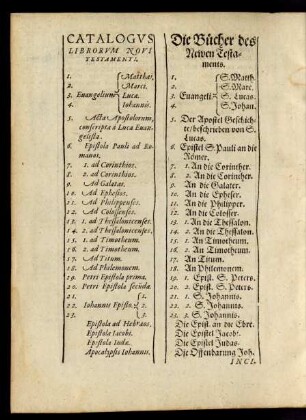 CATALOGVS
LIBRORVM NOVI
TESTAMENTI.
1. Matthæi.
2. Marci.
3. Euangelium Lucæ.
4. Iohannis.
5. Acta Apostolorum,
conscripta à Luca Euan-
gelista.
6. Epistola Pauli ad Ro-
manos.
7. 1. ad Corinthios.
8. 2. ad Corinthios.
9. Ad Galatas.
10. Ad Ephesios.
11. Ad Philippenses.
12. Ad Colossenses.
13. 1. ad Thessalonicenses.
14. 2. ad Thessalonicenses.
15. 1. ad Timotheum.
16. 2. ad Timotheum.
17. Ad Titum.
18. Ad Philemonem.
19. Petri Epistola prima.
20. Petri Epistola secūda.
21. 1.
22. Iohannis Epistolæ 2.
23. 3.
Epistola ad Hebræos.
Epistola Iacobi.
Epistola Iudæ.
Apocalypsis Iohannis.
Die Bücher des
Newen Testa-
ments.
1. S. Matth.
2. S. Marc.
3. Euangeli: S. Lucas.
4. S. Johan.
5. Der Apostel Geschich-
te/beschrieben von S.
Lucas.
6. Epistel S. Pauli an die
Römer.
7. 1. An die Corinther.
8. 2. An die Corinther.
9. An die Galater.
10. An die Epheser.
11. An die Philipper.
12. An die Colosser.
13. 1. An die Thessalon.
14. 2. An die Thessalon.
15. 1. An Timotheum.
16. 2. An Timotheum.
17. An Titum.
18. An Philemonem.
19. 1. Epist. S. Peters.
20. 2. Epist. S. Peters.
21. 1. S. Johannis.
22. 2. S. Johannis.
23. 3. S. Johannis.
Die Epist. an die Ebre.
Die Epistel Jacobi.
Die Epistel Judas.
Die Offenbarung Joh.
INCI-